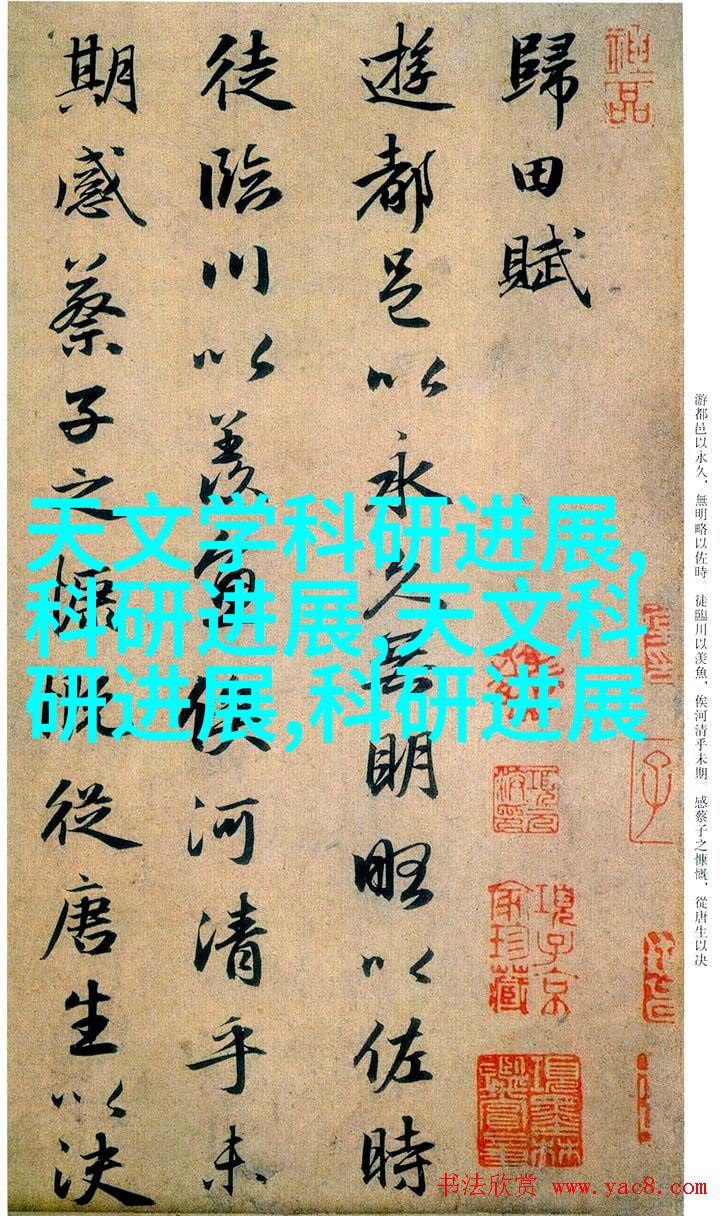 歸田賦
遊都邑以永久無明略以佐時
徒臨川以羨魚俟河清乎未
期感蔡子之慷慨從唐生以決
天文学科研进展,
科研进展,天文科
研进展,科研进展
游都邑以永久，無明略以佐時。徒臨川以羨魚，俟河清乎未期。感蔡子之慷慨，從唐生以决
項子京家珍藏
项墨林鑑賞章
书法欣赏 www.yac8.com